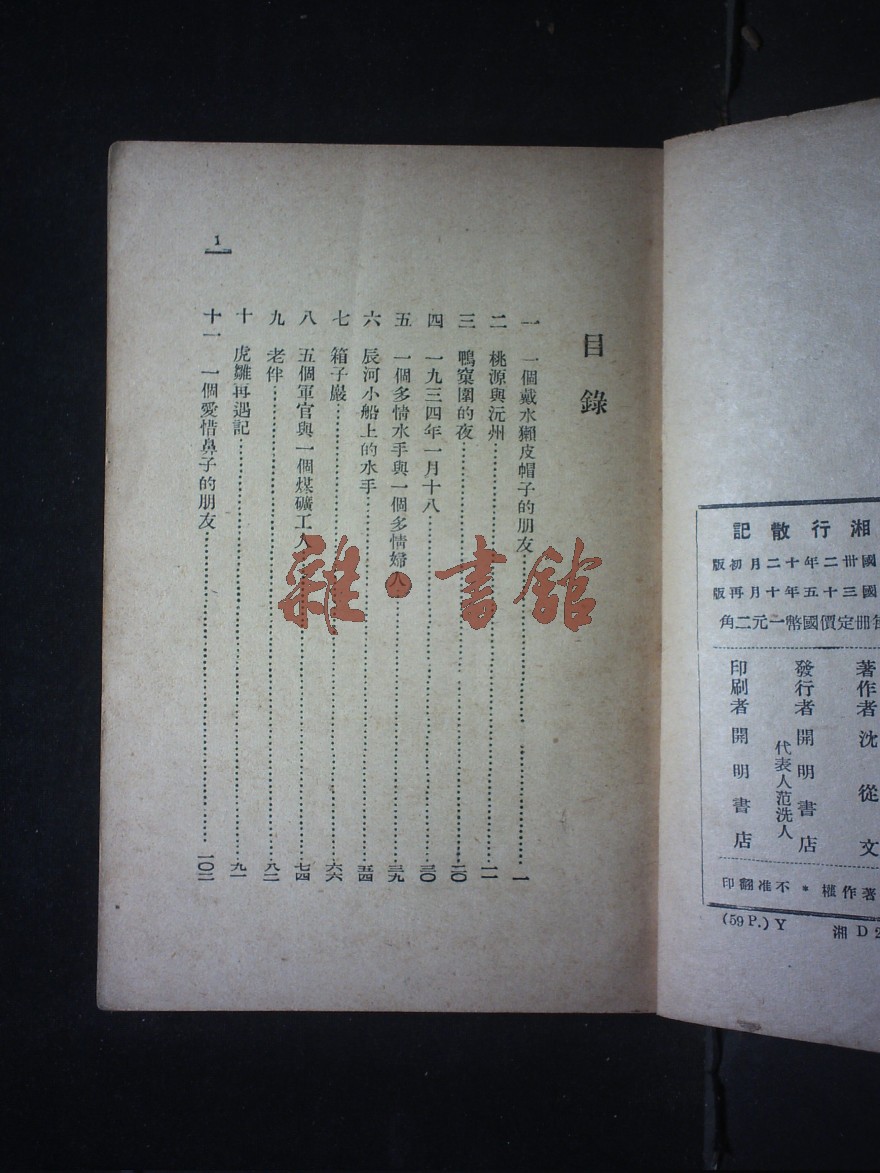 湘行散記
國卅二年十二月初版
國三十五年十月再版
冊定價國幣一元二角
著作者 沈從文
發行者 開明書店
代表人范洗人
印刷者 開明書店
著作權*不准翻印
(59 P.) Y 湘 D 2
目錄
一 一個戴水獺皮帽子的朋友……一
二 桃源與沅州……一一
三 鴨窠圍的夜……二〇
四 一九三四年一月十八……三〇
五 一個多情水手與一個多情婦人……三九
六 辰河小船上的水手……五四
七 箱子巖……六六
八 五個軍官與一個煤礦工人……七四
九 老伴……八二
十 虎雛再遇記……九一
十一 一個愛惜鼻子的朋友……一〇二
1
雜·書館